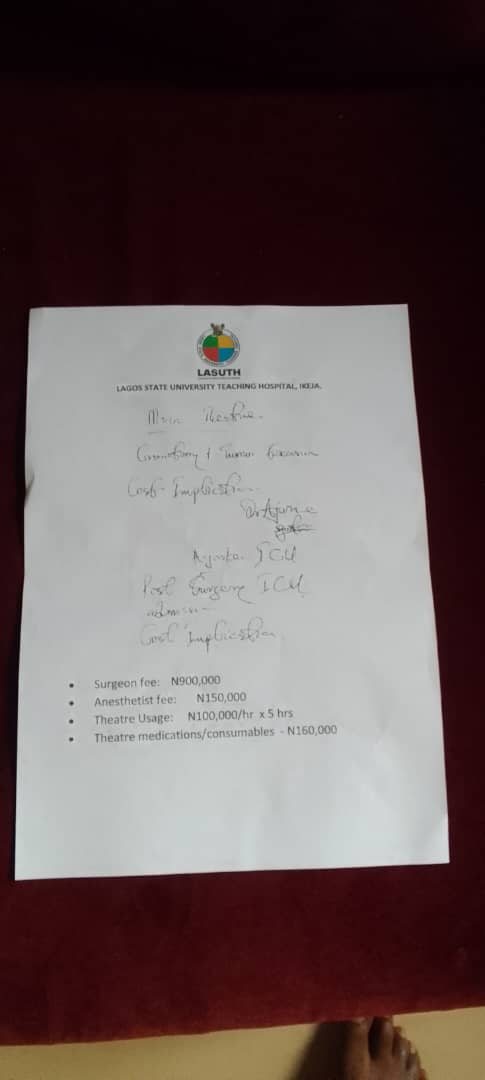 LASUTH
LAGOS STATE UNIVERSITY TEACHING HOSPITAL, IKEJA.
Main Theatre.
Craniotomy + Tumor Excision
Cost Implication
Dr Ajume
ICU
Post Surgery ICU
admission
Cost Implication
• Surgeon fee: N900,000
• Anesthetist fee: N150,000
• Theatre Usage: N100,000/hr x 5 hrs
• Theatre medications/consumables - N160,000